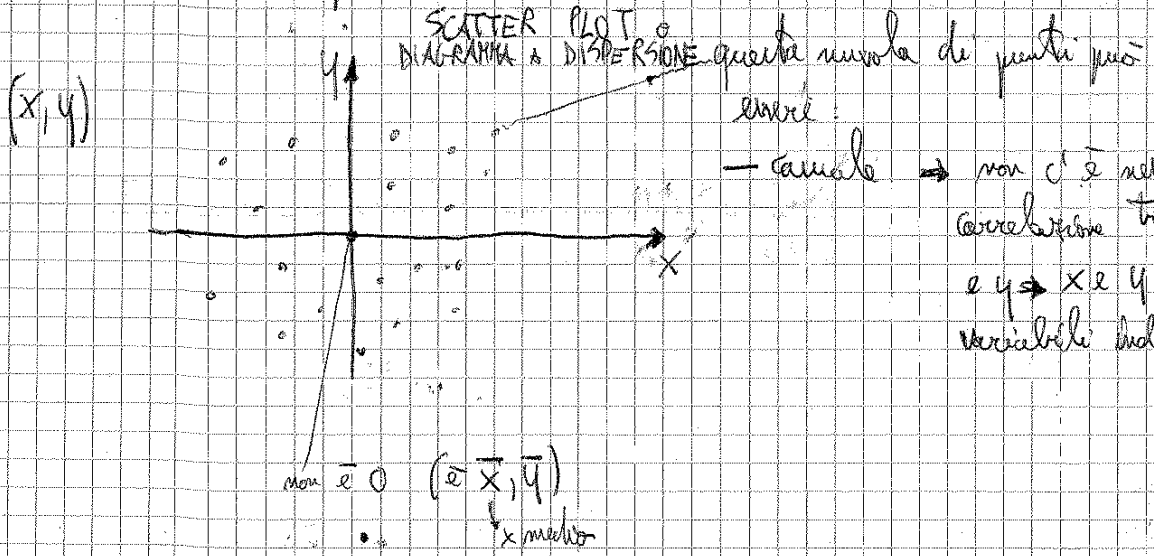 SCATTER PLOT o
DIAGRAMMA A DISPERSIONE
questa nuvola di punti può
essere:
(x, y)
y
x
– casuale → non c'è
correlazione
e y → x e y
variabili
non è 0 (è x̄, ȳ)
x medio